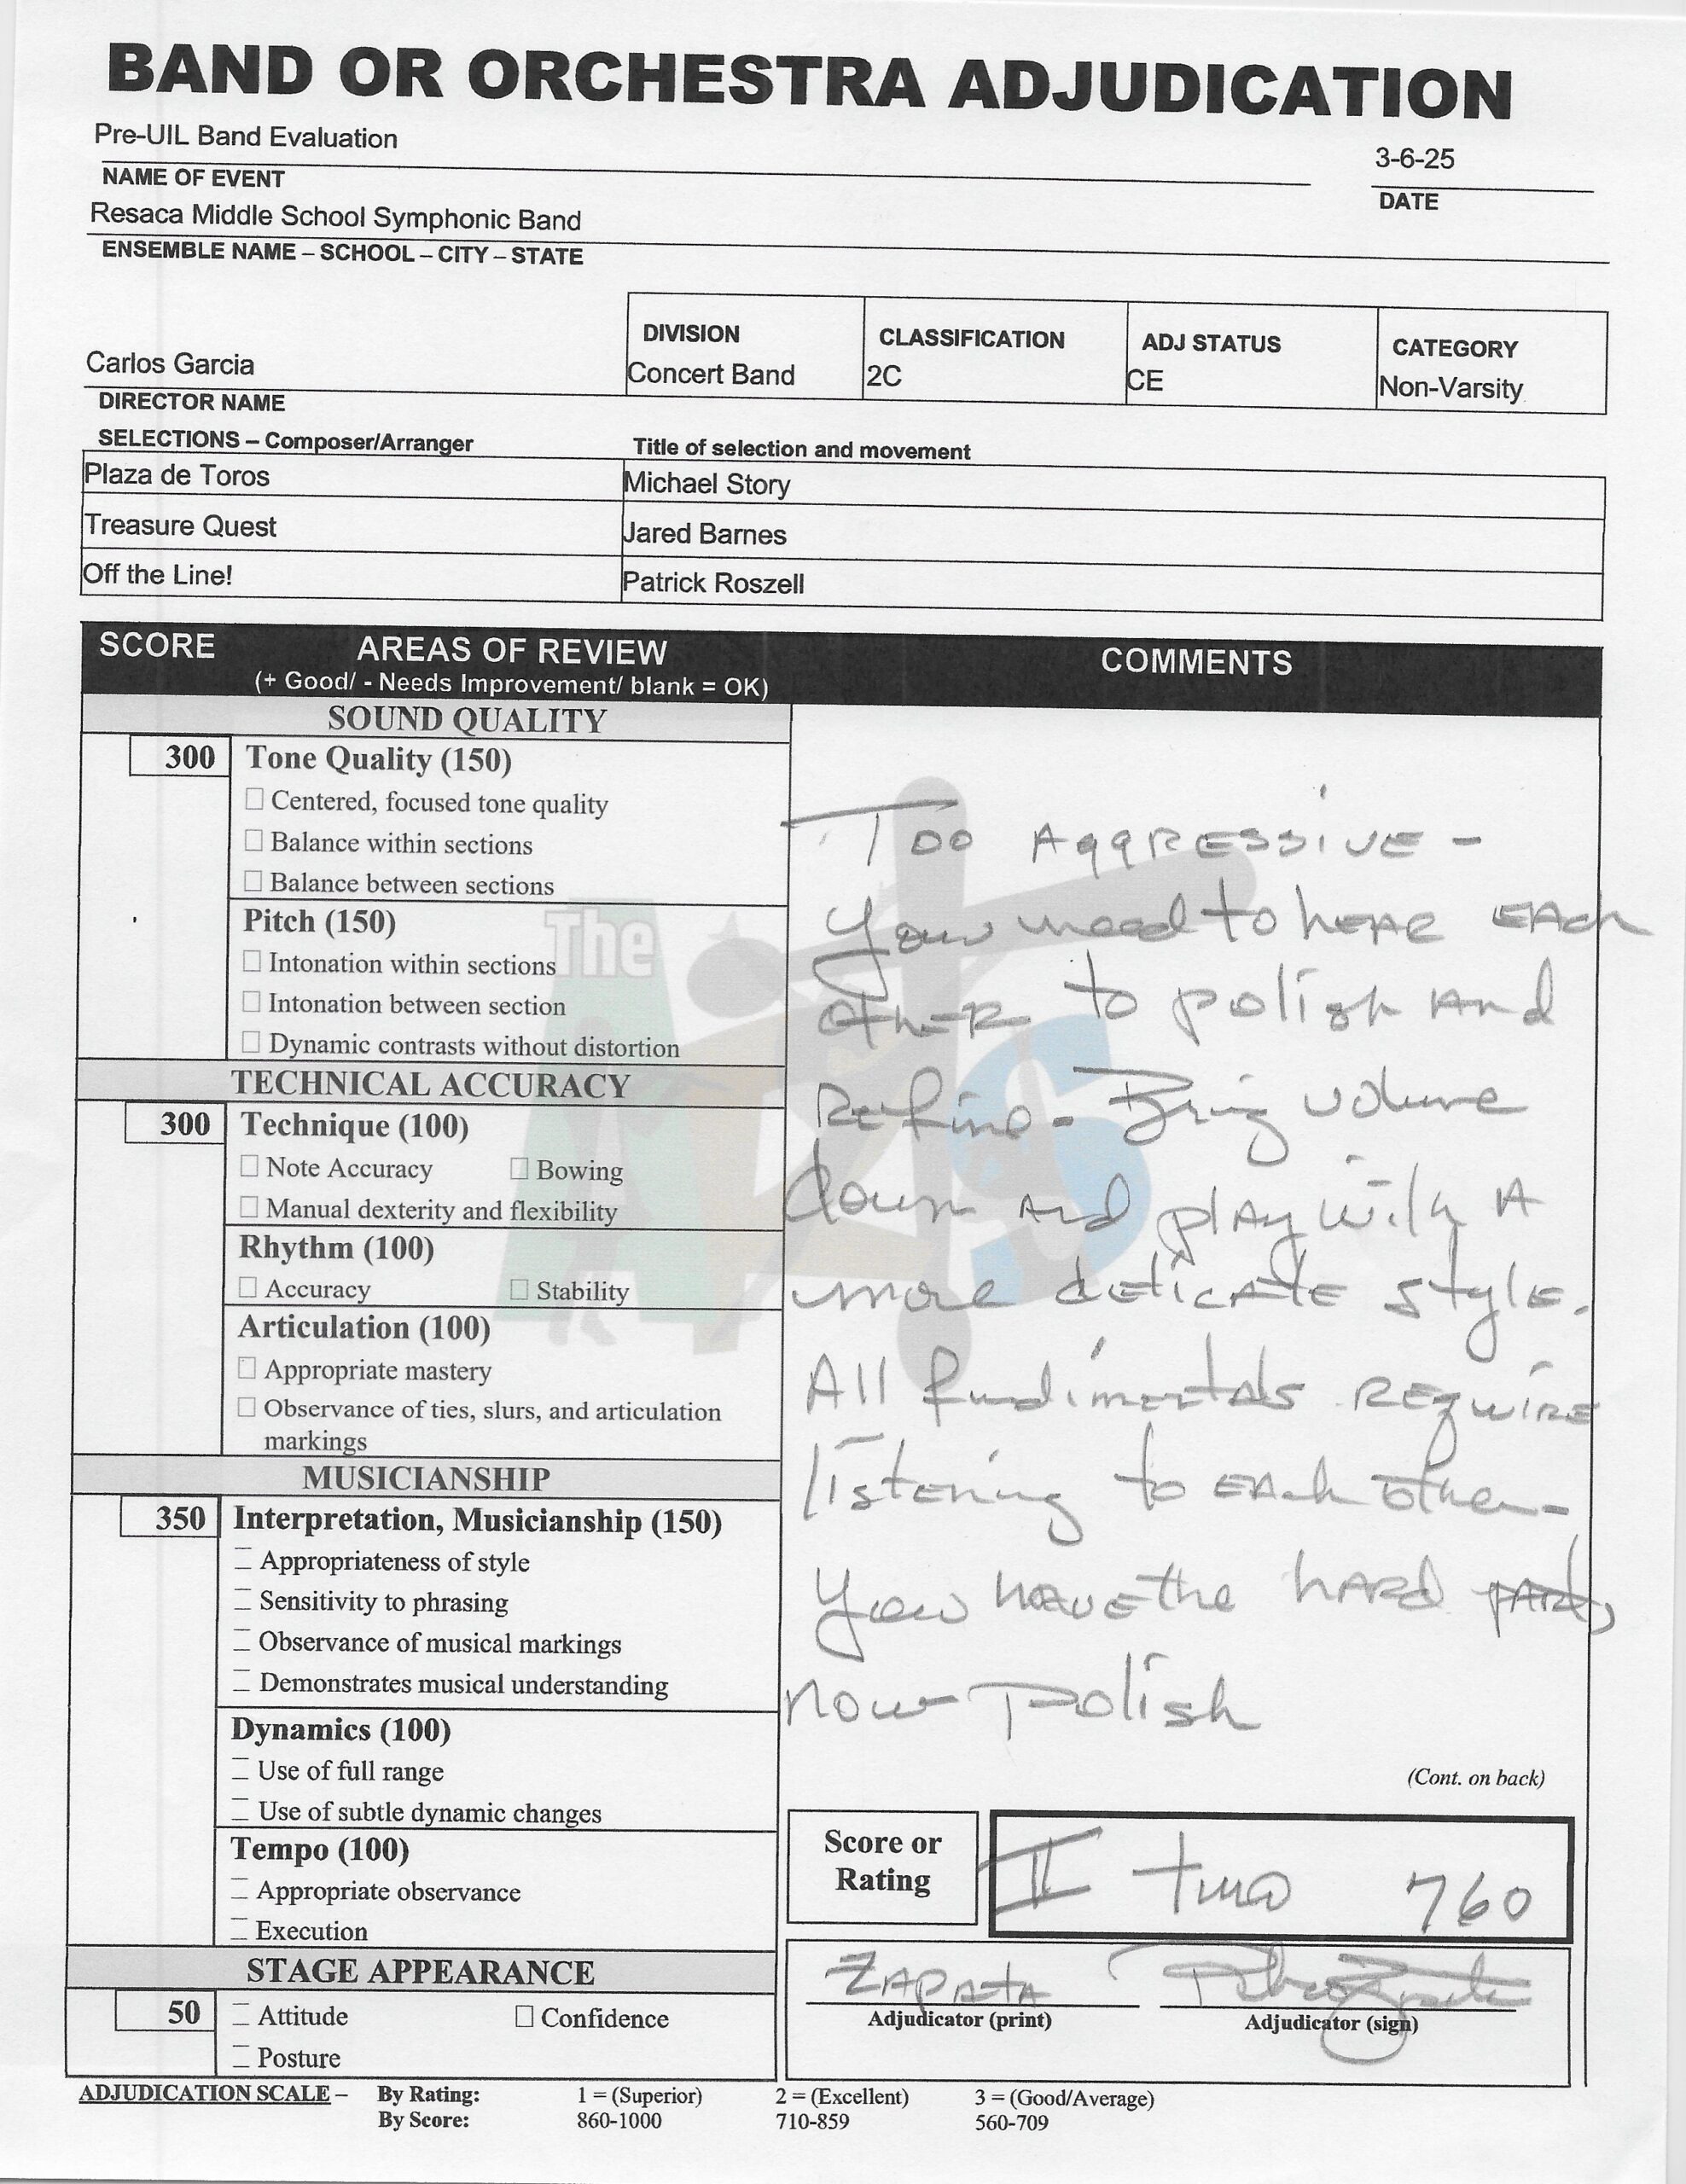 BAND OR ORCHESTRA ADJUDICATION
Pre-UIL Band Evaluation
3-6-25
NAME OF EVENT
DATE
Resaca Middle School Symphonic Band
ENSEMBLE NAME – SCHOOL – CITY – STATE
DIVISION CLASSIFICATION ADJ STATUS CATEGORY
Carlos Garcia
Concert Band 2C CE Non-Varsity
DIRECTOR NAME
SELECTIONS – Composer/Arranger Title of selection and movement
Plaza de Toros Michael Story
Treasure Quest Jared Barnes
Off the Line! Patrick Roszell
SCORE AREAS OF REVIEW COMMENTS
(+ Good/ - Needs Improvement/ blank = OK)
SOUND QUALITY
300 Tone Quality (150)
Centered, focused tone quality
Balance within sections
Balance between sections
Pitch (150)
Intonation within sections
Intonation between section
Dynamic contrasts without distortion
TECHNICAL ACCURACY
300 Technique (100)
Note Accuracy Bowing
Manual dexterity and flexibility
Rhythm (100)
Accuracy Stability
Articulation (100)
Appropriate mastery
Observance of ties, slurs, and articulation
markings
MUSICIANSHIP
350 Interpretation, Musicianship (150)
Appropriateness of style
Sensitivity to phrasing
Observance of musical markings
Demonstrates musical understanding
Dynamics (100)
Use of full range
Use of subtle dynamic changes
Tempo (100)
Appropriate observance
Execution
STAGE APPEARANCE
50 Attitude Confidence
Posture
The
Too Aggressive -
You need to hear each
other to polish and
Refine - Bring volume
down and play with A
more delicate style.
All fundimentals Require
listening to each other -
You have the hard parts
now polish
(Cont. on back)
Score or
Rating
II two 760
ZAPATA
Adjudicator (print) Adjudicator (sign)
ADJUDICATION SCALE – By Rating: 1 = (Superior) 2 = (Excellent) 3 = (Good/Average)
By Score: 860-1000 710-859 560-709